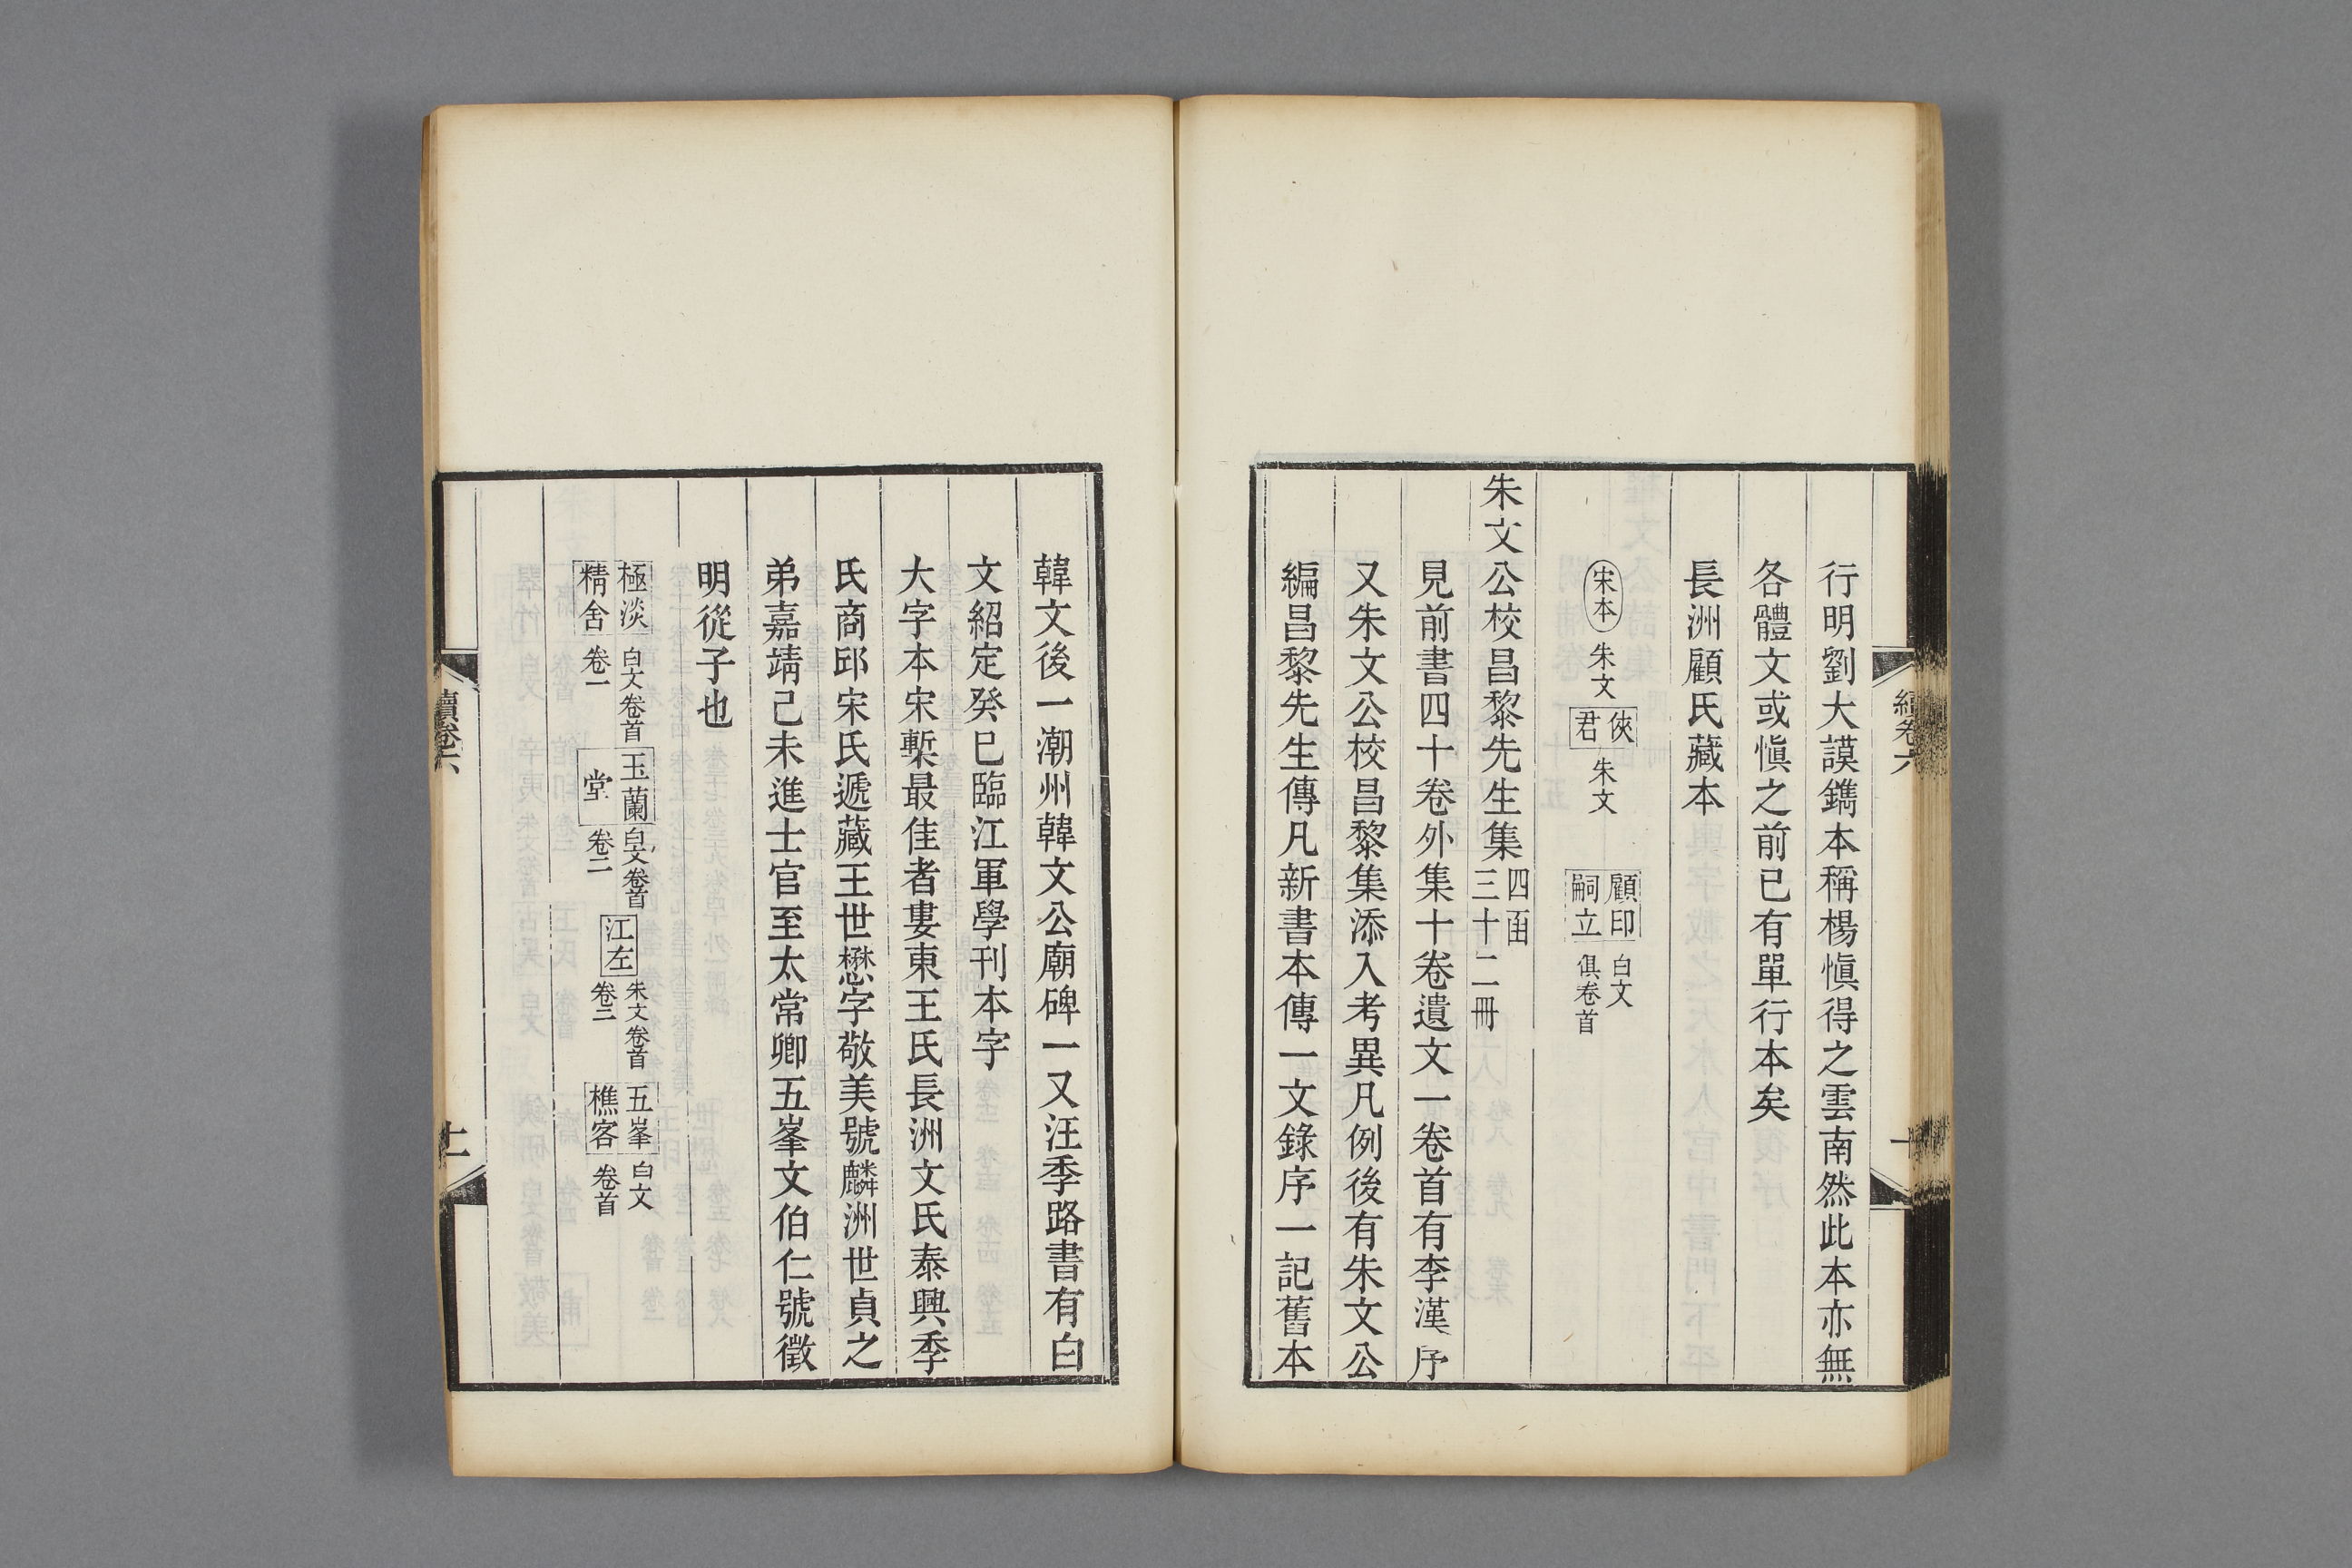 續卷六
行明劉大謨鐫本稱楊愼得之雲南然此本亦無
各體文或愼之前已有單行本矣
長洲顧氏藏本
宋本 朱文 俠君 朱文 顧印嗣立 白文 俱卷首
朱文公校昌黎先生集 四函三十二冊
見前書四十卷外集十卷遺文一卷首有李漢序
又朱文公校昌黎集添入考異凡例後有朱文公
編昌黎先生傳凡新書本傳一文錄序一記舊本
韓文後一潮州韓文公廟碑一又汪季路書有白
文紹定癸巳臨江軍學刊本字
大字本宋槧最佳者婁東王氏長洲文氏泰興季
氏商邱宋氏遞藏王世懋字敬美號麟洲世貞之
弟嘉靖己未進士官至太常卿五峯文伯仁號徵
明從子也
極淡精舍 白文卷首卷一 玉蘭堂 白文卷首卷二 江左 朱文卷首卷三 五峯樵客 白文卷首
續卷六
十一